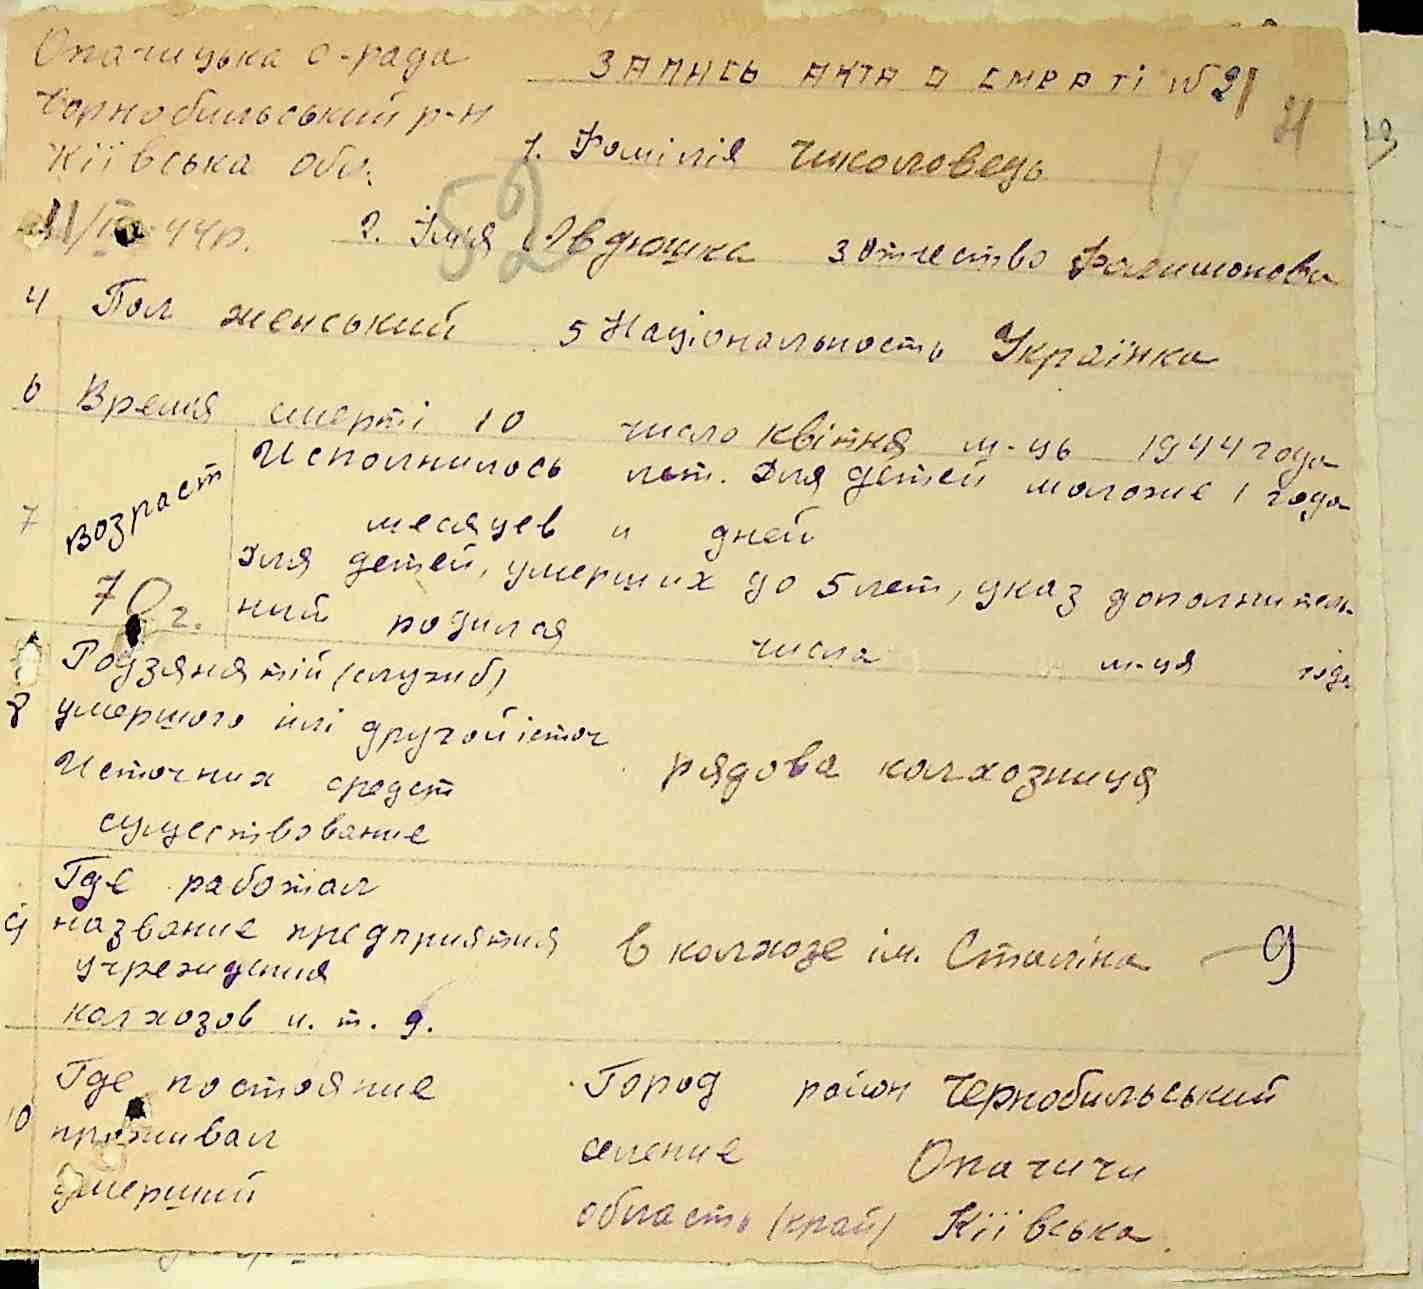 Опачицька с-рада
Чорнобильський р-н
Київська обл.
11/IV 44р.
Запись акта о смерті № 21
21
52
1. Фомілія Чиколовець
2. Імя Овдюшка 3 Отчество Фолимонова
4 Пол женський 5 Національность Українка
6 Время смерті 10 число квітня м-ць 1944 года
7 возраст 70 г.
Исполнилось лет. Для детей моложе 1 года
месяцев и дней
Для детей, умерших до 5 лет, указ дополнитель-
ний родился числа м-ця года
8 Род занятій (служб)
умершого ілі другой істоч
Источних средст
существование
рядова колхозниця
9 Где работал
название предприятия
учреждения
колхозов и. т. д.
в колхозе ім. Сталіна 9
10 Где постояние
проживал
умерший
Город район Чернобильський
селение Опачичи
область (край) Київська.